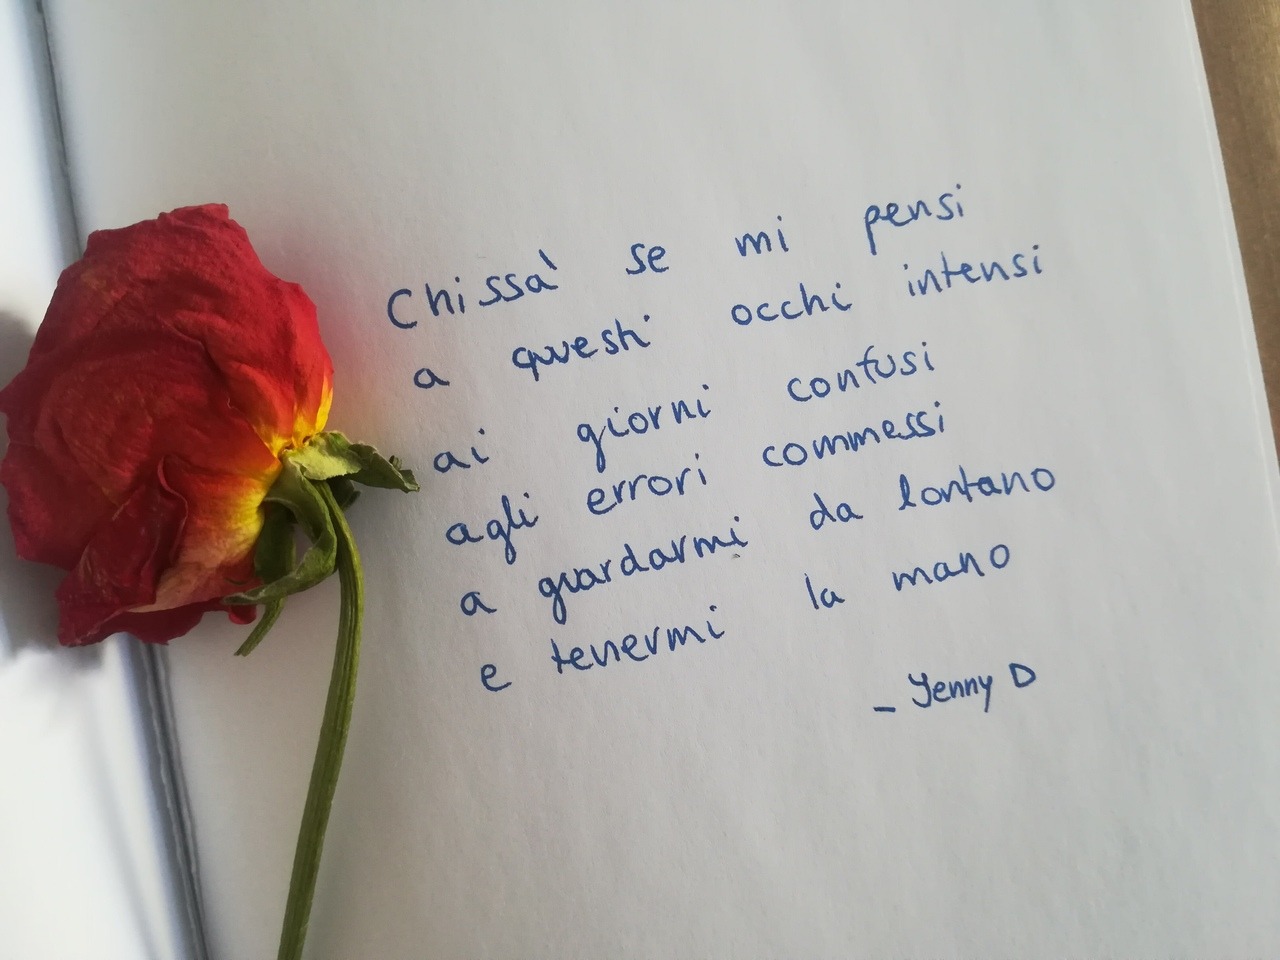 Chissà se mi pensi
a questi occhi intensi
ai giorni confusi
agli errori commessi
a guardarmi da lontano
e tenermi la mano
_ Jenny D